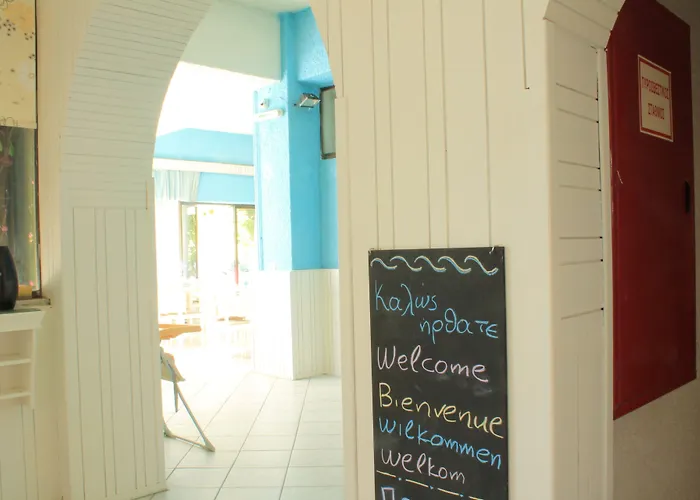 Καλώς
ηρθατε
Welcome
Bienvenue
Wilkommen
Welkom
ΠΥΡΟΣΒΕΣΤΙΚΟΣ
ΣΤΑΘΜΟΣ